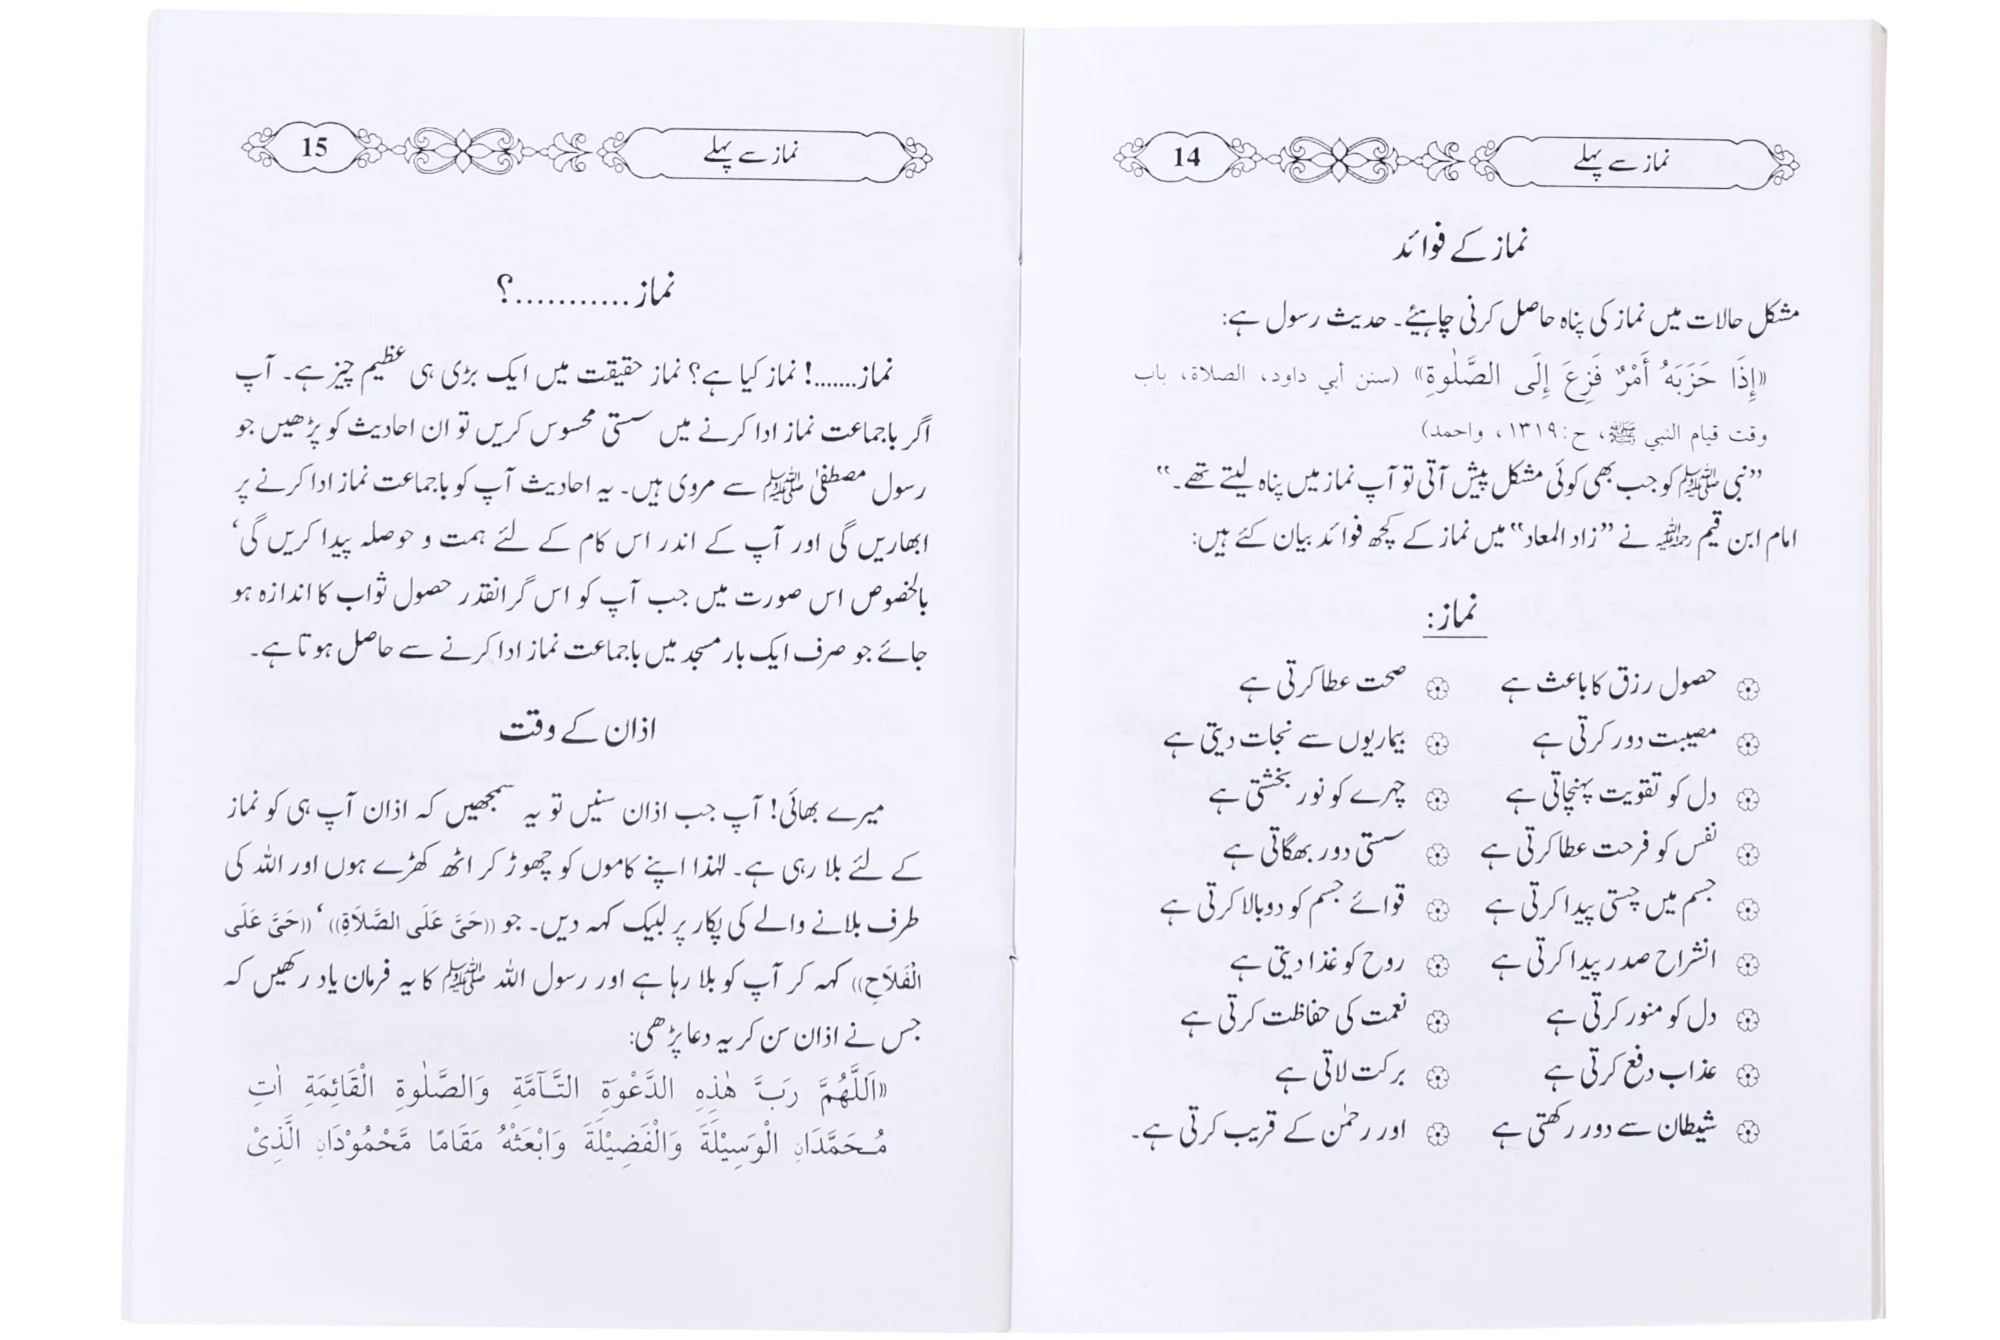 نماز سے پہلے 14
نماز کے فوائد
مشکل حالات میں نماز کی پناہ حاصل کرنی چاہیئے۔ حدیث رسول ہے:
«إِذَا حَزَبَهُ أَمْرٌ فَزِعَ إِلَى الصَّلٰوةِ» (سنن أبي داود، الصلاة، باب
وقت قيام النبي ﷺ، ح:١٣١٩، واحمد)
”نبی ﷺ کو جب بھی کوئی مشکل پیش آتی تو آپ نماز میں پناہ لیتے تھے۔“
امام ابن قیم رحمہ اللہ نے ”زاد المعاد“ میں نماز کے کچھ فوائد بیان کئے ہیں:
نماز:
حصول رزق کا باعث ہے صحت عطا کرتی ہے
مصیبت دور کرتی ہے بیماریوں سے نجات دیتی ہے
دل کو تقویت پہنچاتی ہے چہرے کو نور بخشتی ہے
نفس کو فرحت عطا کرتی ہے سستی دور بھگاتی ہے
جسم میں چستی پیدا کرتی ہے قوائے جسم کو دوبالا کرتی ہے
انشراح صدر پیدا کرتی ہے روح کو غذا دیتی ہے
دل کو منور کرتی ہے نعمت کی حفاظت کرتی ہے
عذاب دفع کرتی ہے برکت لاتی ہے
شیطان سے دور رکھتی ہے اور رحمٰن کے قریب کرتی ہے۔
نماز سے پہلے 15
نماز ...........؟
نماز.......! نماز کیا ہے؟ نماز حقیقت میں ایک بڑی ہی عظیم چیز ہے۔ آپ
اگر باجماعت نماز ادا کرنے میں سستی محسوس کریں تو ان احادیث کو پڑھیں جو
رسول مصطفیٰ ﷺ سے مروی ہیں۔ یہ احادیث آپ کو باجماعت نماز ادا کرنے پر
ابھاریں گی اور آپ کے اندر اس کام کے لئے ہمت و حوصلہ پیدا کریں گی‘
بالخصوص اس صورت میں جب آپ کو اس گرانقدر حصول ثواب کا اندازہ ہو
جائے جو صرف ایک بار مسجد میں باجماعت نماز ادا کرنے سے حاصل ہوتا ہے۔
اذان کے وقت
میرے بھائی! آپ جب اذان سنیں تو یہ سمجھیں کہ اذان آپ ہی کو نماز
کے لئے بلا رہی ہے۔ لہٰذا اپنے کاموں کو چھوڑ کر اٹھ کھڑے ہوں اور اللہ کی
طرف بلانے والے کی پکار پر لبیک کہہ دیں۔ جو ((حَيَّ عَلَى الصَّلاَةِ))‘ ((حَيَّ عَلَى
الْفَلاَحِ)) کہہ کر آپ کو بلا رہا ہے اور رسول اللہ ﷺ کا یہ فرمان یاد رکھیں کہ
جس نے اذان سن کر یہ دعا پڑھی:
«اَللَّهُمَّ رَبَّ هٰذِهِ الدَّعْوَةِ التَّآمَّةِ وَالصَّلٰوةِ الْقَائِمَةِ اٰتِ
مُحَمَّدَانِ الْوَسِيْلَةَ وَالْفَضِيْلَةَ وَابْعَثْهُ مَقَامًا مَّحْمُوْدَانِ الَّذِيْ